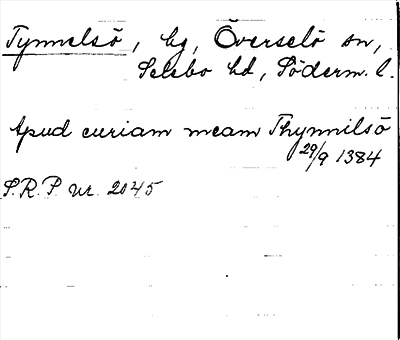 Tynnelsö, hg, Överselö sn,
Selebo hd, Söderm. l.
Apud curiam meam Thynnilsö
29/9 1384
S.R.P. nr. 2045